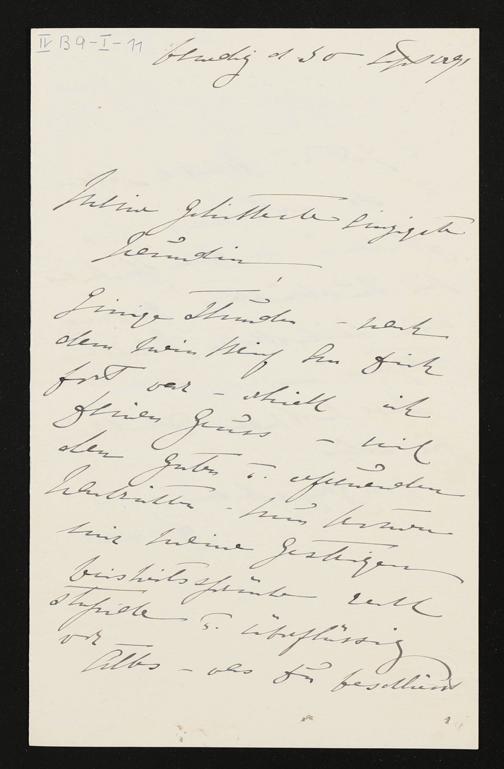 IV B9-I-11
Venedig d 30 Sept 1891
Meine Geliebteste Einzigste
Freundin!
Einige Stunden – nach
dem mein Brief an Dich
fort war – erhielt ich
Deinen Gruss – mit
den guten u. erfreuenden
Nachrichten – kommen
mir meine gestrigen
Weisheitssprüche recht
u. überflüssig
vor
Alles – was Du